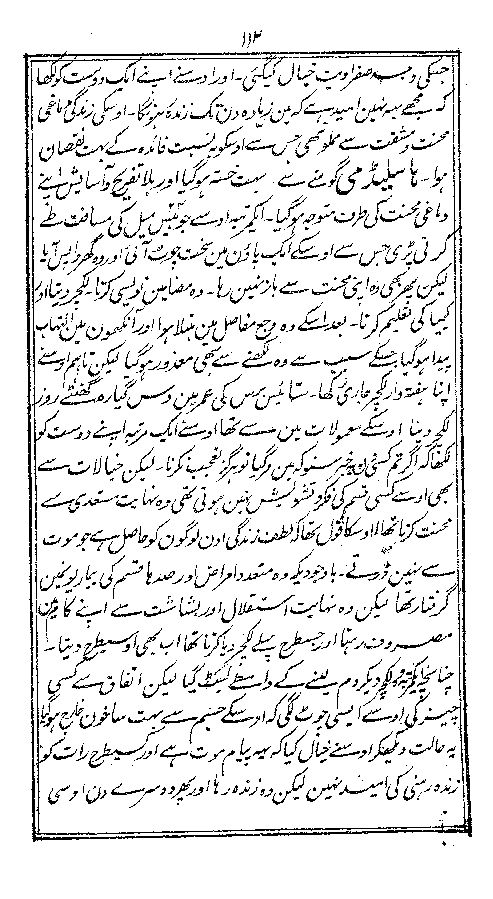 ۱۱۲
جسکی وجہ صفراویت خیال کیگئی۔ اور اوسنے اپنے ایک دوست کو لکھا
کہ مجھے یہہ نہین امید ہے کہ مین زیادہ دن تک زندہ رہونگا۔ اوسکی زندگی دماغی
محنت و مشقت سے مملو تھی جس سے اوسکو بہ نسبت فائدہ کے بہت نقصان
ہوا۔ ہاسلیڈرمی گومنے سے بہت خستہ ہوگیا اور بلا تفریح و آسایش اپنے
دماغی محنت کی طرف متوجہ ہوگیا۔ ایک مرتبہ اوسے چوبیس میل کی مسافت طے
کرنی پڑی جس سے اوسکے ایک پاؤن مین سخت چوٹ آئی اور وہ گھر واپس آیا
لیکن پھر بھی وہ اپنی محنت سے باز نہین رہا۔ وہ مضامین نویسی کرتا۔ لکچر دیتا اور
کیمیا کی تعلیم کرتا۔ بعد اسکے وہ وجع مفاصل مین مبتلا ہوا اور آنکھون مین التہاب
پیدا ہوگیا جسکے سبب سے وہ لکھنے سے بھی معذور ہوگیا لیکن تاہم اوسنے
اپنا ہفتہ وار لکچر جاری رکھا۔ ستائیس برس کی عمر مین دس گیارہ گھنٹے روز
لکچر دینا اوسکے معمولات مین سے تھا اوسنے ایک مرتبہ اپنے دوست کو
لکھا کہ اگر تم کسی دن یہ خبر سنو کہ مین مرگیا تو ہرگز تعجب نکرنا۔ لیکن خیالات سے
بھی اوسے کسی قسم کی فکر و تشویش نہین ہوتی تھی وہ نہایت مستعدی سے
محنت کرتا تھا اوسکا قول تھا کہ لطف زندگی اون لوگون کو حاصل ہے جو موت
سے نہین ڈرتے۔ باوجودیکہ وہ متعدد امراض اور صدہا قسم کی بیماریونمین
گرفتار تھا لیکن وہ نہایت استقلال اور بشاشت سے اپنے کام مین
مصروف رہتا اور جسطرح پہلے لکچر دیا کرتا تھا اب بھی اوسیطرح دیتا۔
چنانچہ ایکمرتبہ وہ لکچر دیکر دم لینے کے واسطے لیٹ گیا لیکن اتفاق سے کسی
چیز کی اوسے ایسی چوٹ لگی کہ اوسکے جسم سے بہت سا خون خارج ہوگیا
یہ حالت دیکھکر اوسنے خیال کیا کہ یہہ پیام موت ہے اور کسیطرح رات کو
زندہ رہنے کی امید نہین لیکن وہ زندہ رہا اور پھر دوسرے دن اوسی